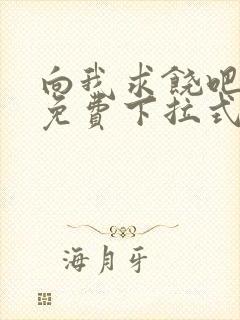 向我求饶吧
免費下拉式
海月牙